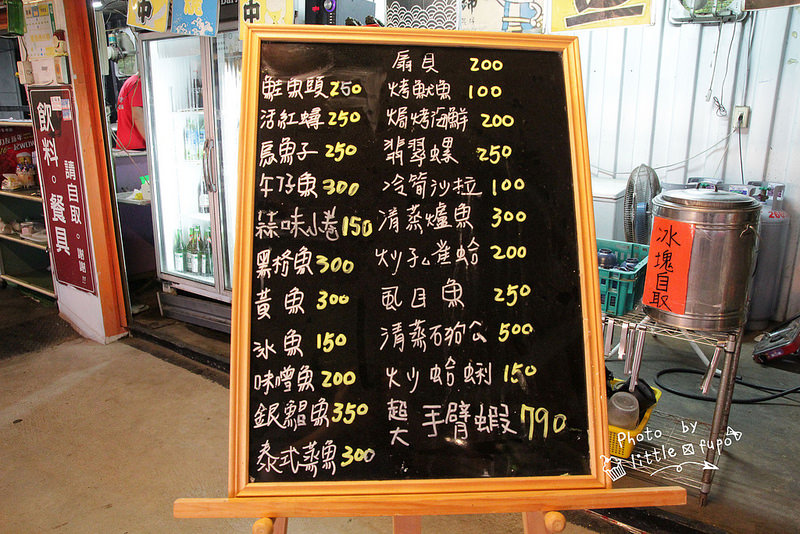 鮭魚頭 250
活紅蟳 250
烏魚子 250
午仔魚 300
蒜味小卷 150
黑格魚 300
黃魚 300
冰魚 150
味噌魚 200
銀鯧魚 350
泰式蒸魚 300
扇貝 200
烤魷魚 100
焗烤海鮮 200
翡翠螺 250
冷筍沙拉 100
清蒸爐魚 300
炒孔雀蛤 200
虱目魚 250
清蒸石狗公 500
炒蛤蜊 150
超大手臂蝦 790
飲料。餐具
請自取。謝謝!!
冰塊自取
中
Photo by
little fupo